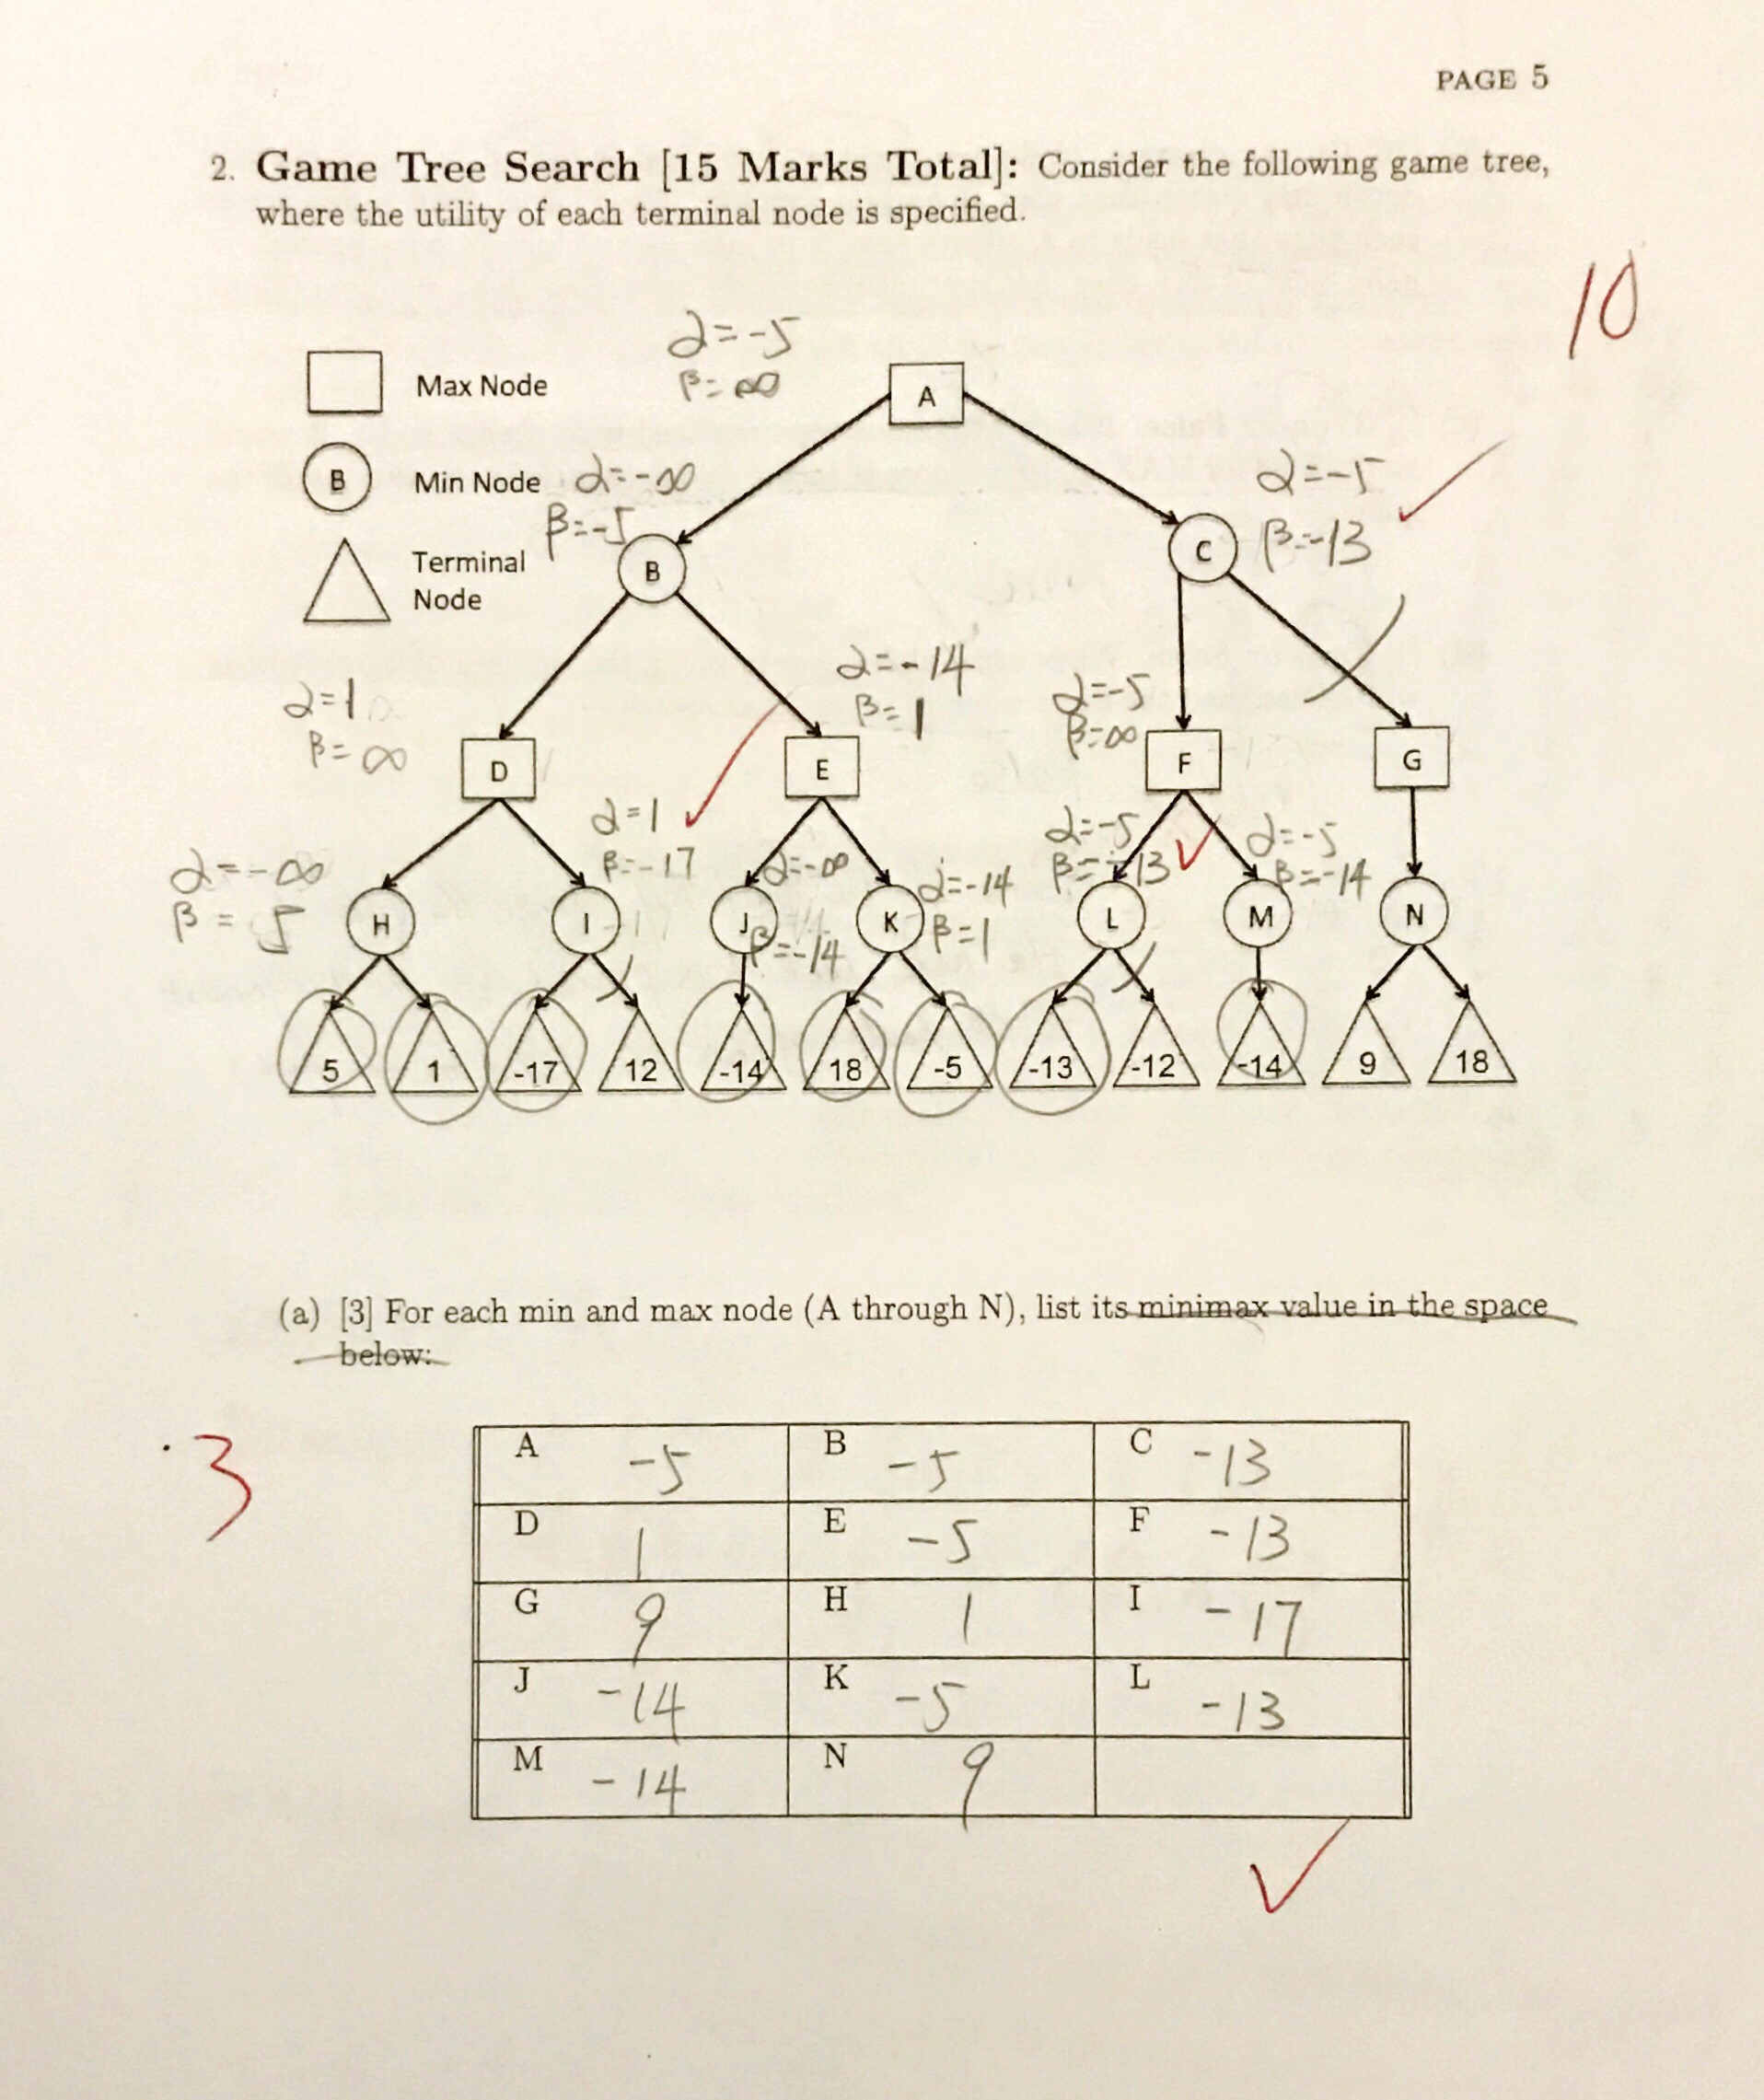 PAGE 5
2. Game Tree Search [15 Marks Total]: Consider the following game tree,
where the utility of each terminal node is specified.
10
α=-5
β=∞
Max Node
A
B
Min Node
α=-∞
β=-5
B
α=-5
β=-13
C
Terminal
Node
α=1
β=∞
D
α=-14
β=1
E
α=-5
β=∞
F
G
α=-∞
β=5
H
α=1
β=-17
I
α=-∞
β=-14
J
α=-14
β=1
K
α=-5
β=-13
L
α=-5
β=-14
M
N
5 1 -17 12 -14 18 -5 -13 -12 -14 9 18
(a) [3] For each min and max node (A through N), list its minimax value in the space
below:
3
A -5 B -5 C -13
D 1 E -5 F -13
G 9 H 1 I -17
J -14 K -5 L -13
M -14 N 9